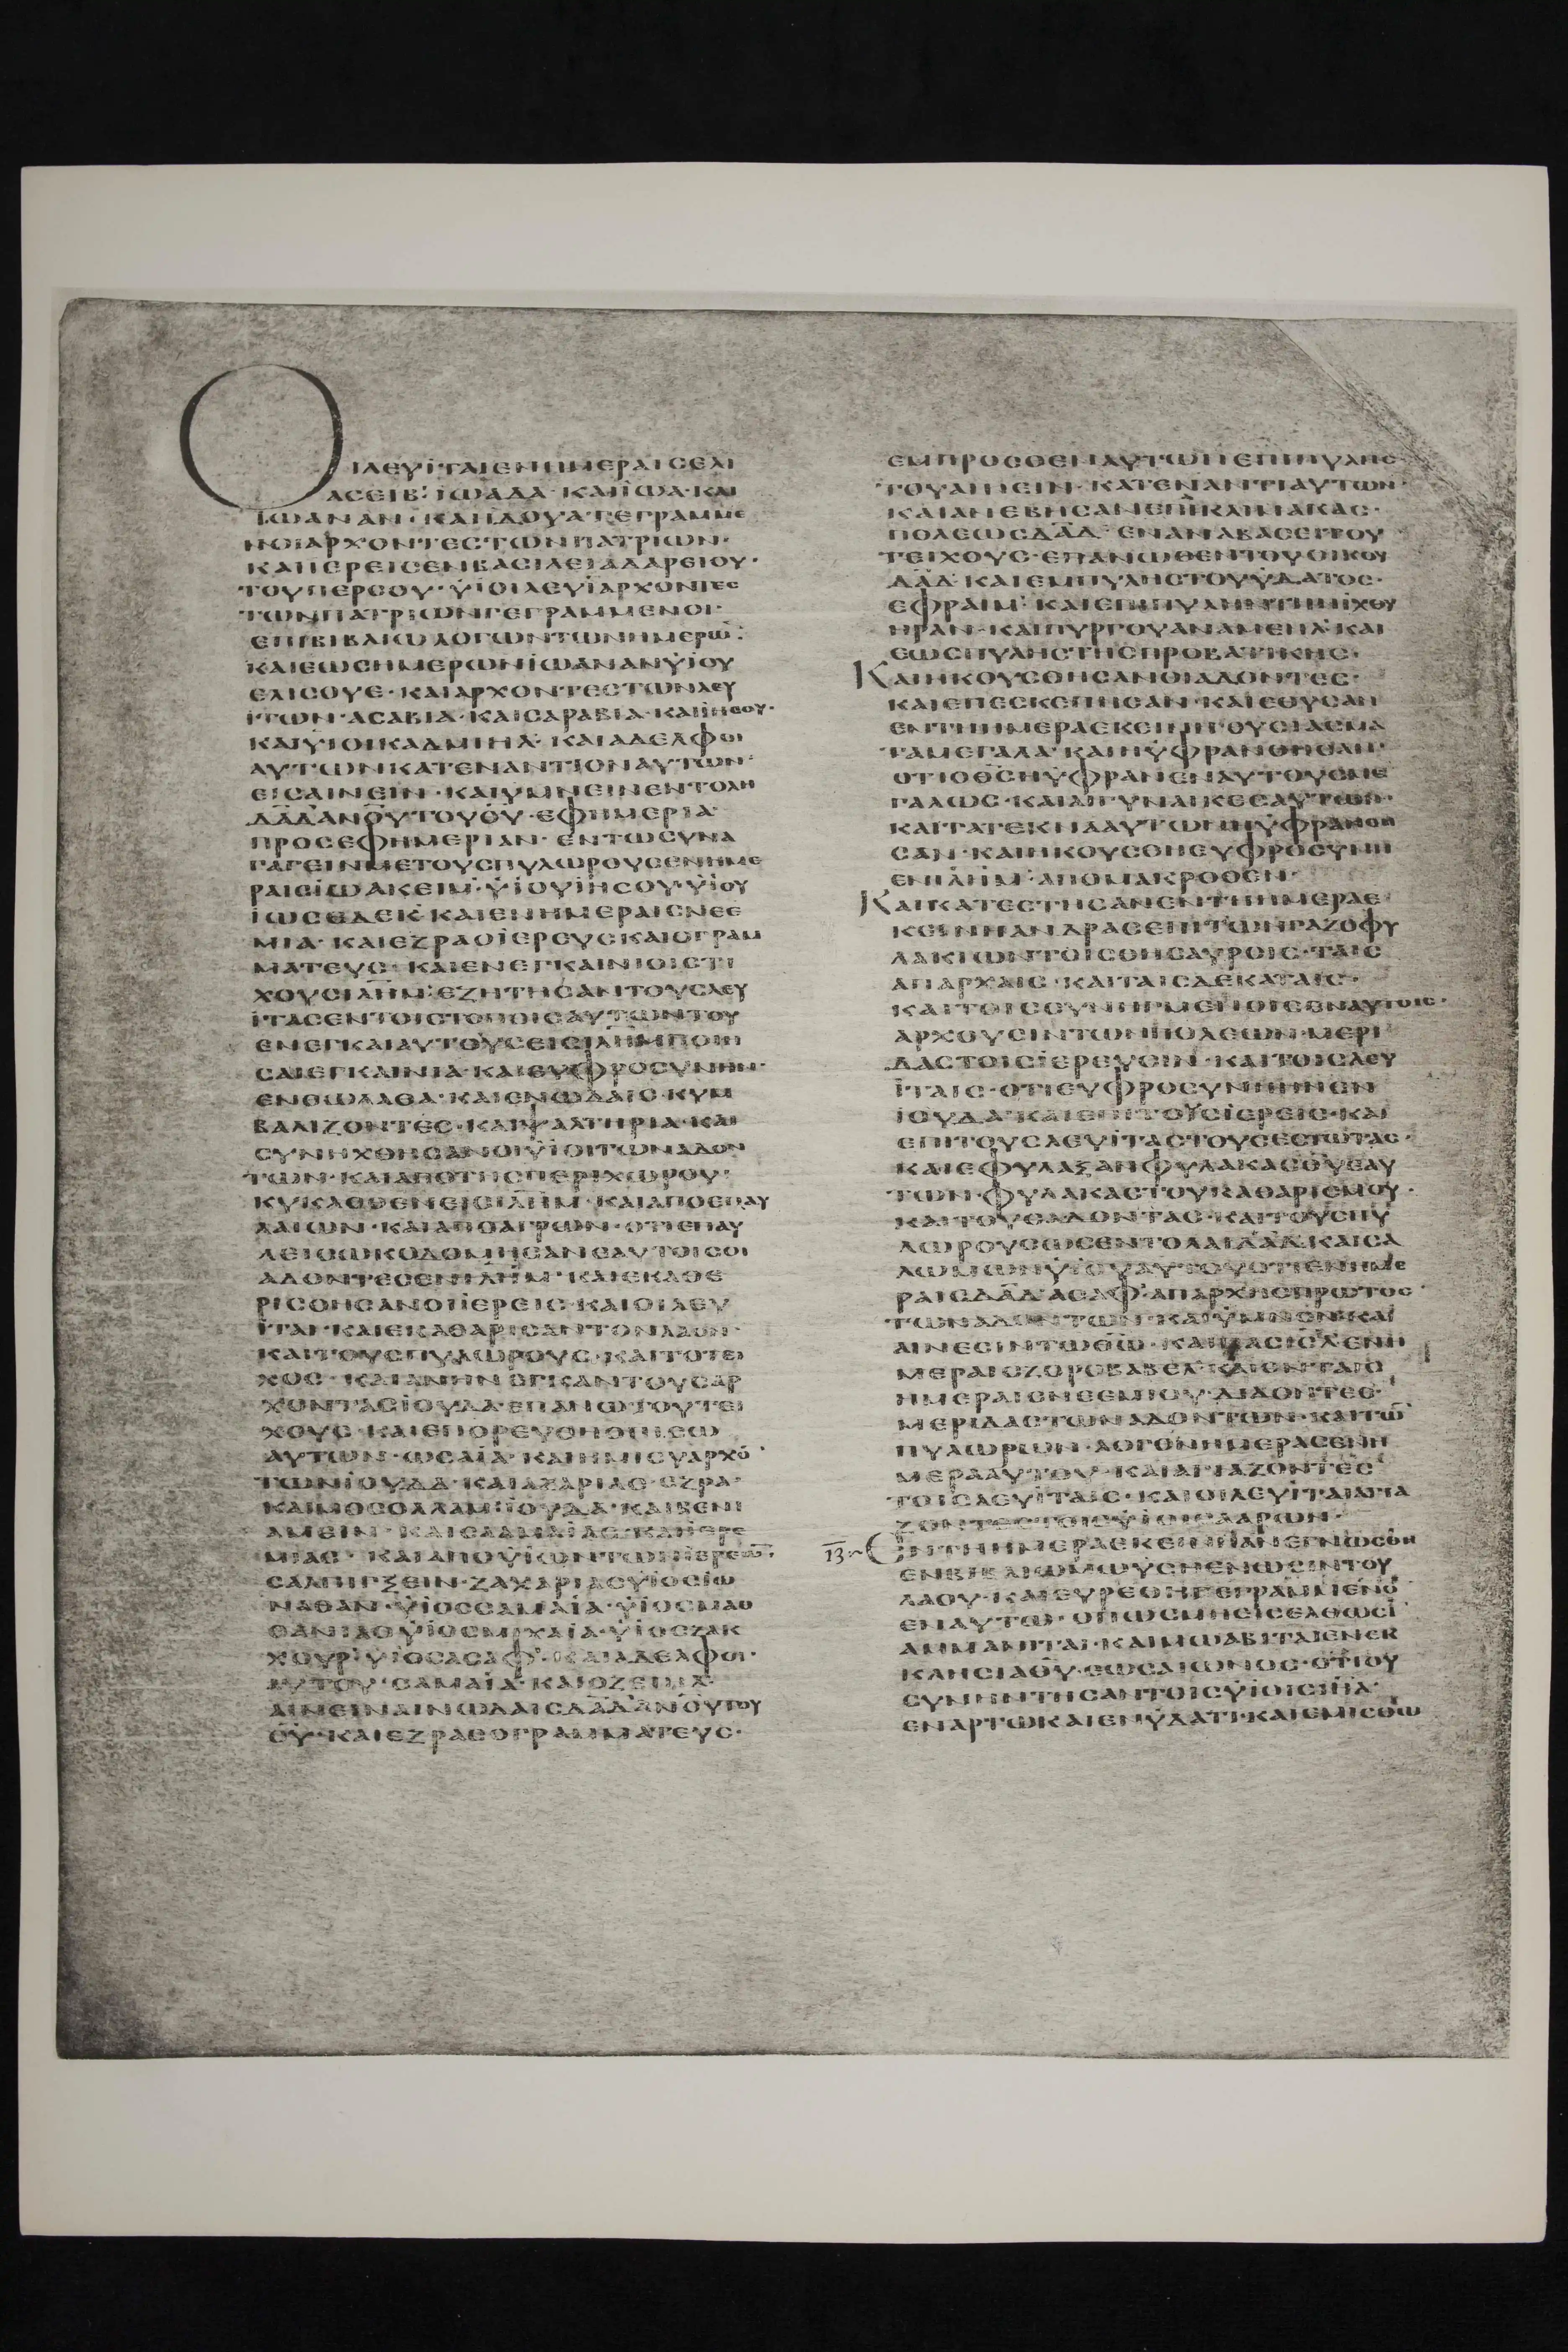 ΟΙΛΕΥΪΤΑΙΕΝΗΜΕΡΑΙСΕΛΙ
ΑСΕΙΒ· ΪΩΑΔΑ· ΚΑΙΪΩΑ· ΚΑΙ
ΪΩΑΝΑΝ· ΚΑΙΪΔΟΥΑ·ΓΕΓΡΑΜΜΕ
ΝΟΙΑΡΧΟΝΤΕСΤΩΝΠΑΤΡΙΩΝ·
ΚΑΙΪΕΡΕΙСΕΝΒΑСΙΛΕΙΑΔΑΡΕΙΟΥ·
ΤΟΥΠΕΡСΟΥ· ΫΙΟΙΛΕΥΪΑΡΧΟΝΤΕС
ΤΩΝΠΑΤΡΙΩΝΓΕΓΡΑΜΜΕΝΟΙ·
ΕΠΙΒΙΒΛΙΩΛΟΓΩΝΤΩΝΗΜΕΡΩ̅·
ΚΑΙΕΩСΗΜΕΡΩΝΪΩΑΝΑΝΫΙΟΥ
ΕΛΙСΟΥΕ· ΚΑΙΑΡΧΟΝΤΕСΤΩΝΛΕΥ
ΪΤΩΝ· ΑСΑΒΙΑ· ΚΑΙСΑΡΑΒΙΑ· ΚΑΙΪΗСΟΥ·
ΚΑΙΫΙΟΙΚΑΔΜΙΗΛ· ΚΑΙΑΔΕΛΦΟΙ
ΑΥΤΩΝΚΑΤΕΝΑΝΤΙΟΝΑΥΤΩΝ·
ΕΙСΑΙΝΕΙΝ· ΚΑΙΥΜΝΕΙΝΕΝΤΟΛΗ
Δ̅Α̅Δ̅ΑΝΟ̅Υ̅ΤΟΥΘ̅Υ̅· ΕΦΗΜΕΡΙΑ·
ΠΡΟСΕΦΗΜΕΡΙΑΝ· ΕΝΤΩСΥΝΑ
ΓΑΓΕΙΝΜΕΤΟΥСΠΥΛΩΡΟΥСΕΝΗΜΕ
ΡΑΙСΪΩΑΚΕΙΜ· ΫΙΟΥΪΗСΟΥ·ΫΙΟΥ
ΪΩСΕΔΕΚ· ΚΑΙΕΝΗΜΕΡΑΙСΝΕΕ
ΜΙΑ· ΚΑΙΕΖΡΑΟΪΕΡΕΥСΚΑΙΟΓΡΑΜ
ΜΑΤΕΥС· ΚΑΙΕΝΕΓΚΑΙΝΙΟΙСΤΙ
ΧΟΥСΙΛ̅Η̅Μ̅· ΕΖΗΤΗСΑΝΤΟΥСΛΕΥ
ΪΤΑСΕΝΤΟΙСΤΟΠΟΙСΑΥΤΩΝΤΟΥ
ΕΝΕΓΚΑΙΑΥΤΟΥСΕΙСΙΛ̅Η̅Μ̅ΠΟΙΗ
СΑΙΕΓΚΑΙΝΙΑ· ΚΑΙΕΥΦΡΟСΥΝΗΝ·
ΕΝΘΩΛΑΘΑ· ΚΑΙΕΝΩΔΑΙС· ΚΥΜ
ΒΑΛΙΖΟΝΤΕС· ΚΑΙΨΑΛΤΗΡΙΑ· ΚΑΙ
СΥΝΗΧΘΗСΑΝΟΙΫΙΟΙΤΩΝΑΔΟΝ
ΤΩΝ· ΚΑΙΑΠΟΤΗСΠΕΡΙΧΩΡΟΥ·
ΚΥΚΛΟΘΕΝΕΙСΙΛ̅Η̅Μ̅· ΚΑΙΑΠΟΕΠΑΥ
ΛΑΙΩΝ· ΚΑΙΑΠΟΑΓΡΩΝ· ΟΤΙΕΠΑΥ
ΛΕΙСΩΚΟΔΟΜΗСΑΝΕΑΥΤΟΙСΟΙ
ΑΔΟΝΤΕСΕΝΙΛ̅Η̅Μ̅· ΚΑΙΕΚΑΘΕ
ΡΙСΘΗСΑΝΟΙΪΕΡΕΙС· ΚΑΙΟΙΛΕΥ
ΪΤΑΙ· ΚΑΙΕΚΑΘΑΡΙСΑΝΤΟΝΛΑΟΝ·
ΚΑΙΤΟΥСΠΥΛΩΡΟΥС· ΚΑΙΤΟΤΕΙ
ΧΟС· ΚΑΙΑΝΗΝΕΓΚΑΝΤΟΥСΑΡ
ΧΟΝΤΑСΪΟΥΔΑ·ΕΠΑΝΩΤΟΥΤΕΙ
ΧΟΥС· ΚΑΙΕΠΟΡΕΥΘΗΟΠΙСΩ
ΑΥΤΩΝ· ΩСΑΪΑ· ΚΑΙΗΜΙСΥΑΡΧΟ̅
ΤΩΝΪΟΥΔΑ· ΚΑΙΑΖΑΡΙΑС· ΕΖΡΑ·
ΚΑΙΜΟСΟΛΛΑΜ· ΪΟΥΔΑ· ΚΑΙΒΕΝΙ
ΑΜΕΙΝ· ΚΑΙСΑΜΑΪΑС· ΚΑΙΪΕΡΕ
ΜΙΑС· ΚΑΙΑΠΟΫΙΩΝΤΩΝΪΕΡΕΩ̅·
СΑΛΠΙΓΞΕΙΝ· ΖΑΧΑΡΙΑСΫΙΟСΪΩ
ΝΑΘΑΝ· ΫΙΟССΑΜΑΪΑ· ΫΙΟСΜΑΘ
ΘΑΝΙΑΟΫΙΟСΜΙΧΑΪΑ· ΫΙΟСΖΑΚ
ΧΟΥΡ· ΫΙΟСΑСΑΦ· ΚΑΙΑΔΕΛΦΟΙ·
ΑΥΤΟΥ· СΑΜΑΪΑ· ΚΑΙΟΖΕΙΗΛ·
ΑΙΝΕΙΝΑΙΝΩΔΑΙСΔ̅Α̅Δ̅ΑΝΟ̅Υ̅ΤΟΥ
Θ̅Υ̅· ΚΑΙΕΖΡΑСΟΓΡΑΜΜΑΤΕΥС·
ΕΜΠΡΟСΘΕΝΑΥΤΩΝΕΠΙΠΥΛΗС·
ΤΟΥΑΙΝΕΙΝ· ΚΑΤΕΝΑΝΤΙΑΥΤΩΝ·
ΚΑΙΑΝΕΒΗСΑΝΕΠΙΚΛΙΜΑΚΑС·
ΠΟΛΕΩСΔ̅Α̅Δ̅· ΕΝΑΝΑΒΑСΕΙΤΟΥ
ΤΕΙΧΟΥС· ΕΠΑΝΩΘΕΝΤΟΥΟΙΚΟΥ
Δ̅Α̅Δ̅· ΚΑΙΕΜΠΥΛΗСΤΟΥΫΔΑΤΟС·
ΕΦΡΑΙΜ· ΚΑΙΕΠΙΠΥΛΗΝΤΗΝΪΧΘΥ
ΗΡΑΝ· ΚΑΙΠΥΡΓΟΥΑΝΑΜΕΗΛ· ΚΑΙ
ΕΩСΠΥΛΗСΤΗСΠΡΟΒΑΤΙΚΗС·
ΚΑΙΗΚΟΥСΘΗСΑΝΟΙΑΔΟΝΤΕС·
ΚΑΙΕΠΕСΚΕΠΗСΑΝ· ΚΑΙΕΘΥСΑΝ
ΕΝΤΗΗΜΕΡΑΕΚΕΙΝΗΘΥСΙΑСΜΑ
ΤΑΜΕΓΑΛΑ· ΚΑΙΗΫΦΡΑΝΘΗСΑΝ·
ΟΤΙΟΘ̅С̅ΗΫΦΡΑΝΕΝΑΥΤΟΥСΜΕ
ΓΑΛΩС· ΚΑΙΑΙΓΥΝΑΙΚΕСΑΥΤΩΝ·
ΚΑΙΤΑΤΕΚΝΑΑΥΤΩΝΗΫΦΡΑΝΘΗ
СΑΝ· ΚΑΙΗΚΟΥСΘΗΕΥΦΡΟСΥΝΗ
ΕΝΙΛ̅Η̅Μ̅· ΑΠΟΜΑΚΡΟΘΕΝ·
ΚΑΙΚΑΤΕСΤΗСΑΝΕΝΤΗΗΜΕΡΑΕ
ΚΕΙΝΗΑΝΔΡΑСΕΠΙΤΩΝΓΑΖΟΦΥ
ΛΑΚΙΩΝΤΟΙСΘΗСΑΥΡΟΙС· ΤΑΙС
ΑΠΑΡΧΑΙС· ΚΑΙΤΑΙСΔΕΚΑΤΑΙС·
ΚΑΙΤΟΙССΥΝΗΓΜΕΝΟΙСΕΝΑΥΤΟΙС·
ΑΡΧΟΥСΙΝΤΩΝΠΟΛΕΩΝ· ΜΕΡΙ
ΔΑСΤΟΙСΪΕΡΕΥСΙΝ· ΚΑΙΤΟΙСΛΕΥ
ΪΤΑΙС· ΟΤΙΕΥΦΡΟСΥΝΗΗΝΕΝ
ΪΟΥΔΑ· ΚΑΙΕΠΙΤΟΥСΪΕΡΕΙС· ΚΑΙ
ΕΠΙΤΟΥСΛΕΥΪΤΑСΤΟΥСΕСΤΩΤΑС·
ΚΑΙΕΦΥΛΑΞΑΝΦΥΛΑΚΑСΘ̅Υ̅ΕΑΥ
ΤΩΝ· ΦΥΛΑΚΑСΤΟΥΚΑΘΑΡΙСΜΟΥ·
ΚΑΙΤΟΥСΑΔΟΝΤΑС· ΚΑΙΤΟΥСΠΥ
ΛΩΡΟΥСΩСΕΝΤΟΛΑΙΔ̅Α̅Δ̅· ΚΑΙСΑ
ΛΩΜΩΝΫΙΟΥΑΥΤΟΥΟΤΙΕΝΗΜΕ
ΡΑΙСΔ̅Α̅Δ̅· ΑСΑΦ· ΑΠΑΡΧΗСΠΡΩΤΟС·
ΤΩΝΑΔΟΝΤΩΝ· ΚΑΙΫΜΝΟΝ· ΚΑΙ
ΑΙΝΕСΙΝΤΩΘ̅Ω̅· ΚΑΙΠΑСΙ̅Σ̅Λ̅ΕΝΗ
ΜΕΡΑΙСΖΟΡΟΒΑΒΕΛ· ΚΑΙΕΝΤΑΙС
ΗΜΕΡΑΙСΝΕΕΜΙΟΥ· ΔΙΔΟΝΤΕС·
ΜΕΡΙΔΑСΤΩΝΑΔΟΝΤΩΝ· ΚΑΙΤΩ̅
ΠΥΛΩΡΩΝ· ΛΟΓΟΝΗΜΕΡΑСΕΝΗ
ΜΕΡΑΑΥΤΟΥ· ΚΑΙΑΓΙΑΖΟΝΤΕС
ΤΟΙСΛΕΥΪΤΑΙС· ΚΑΙΟΙΛΕΥΪΤΑΙΑΓΙΑ
ΖΟΝΤΕСΤΟΙСΫΙΟΙСΑΑΡΩΝ·
13 ΕΝΤΗΗΜΕΡΑΕΚΕΙΝΗΑΝΕΓΝΩСΘΗ
ΕΝΒΙΒΛΙΩΜΩΥСΗΕΝΩСΙΝΤΟΥ
ΛΑΟΥ· ΚΑΙΕΥΡΕΘΗΓΕΓΡΑΜΜΕΝΟ̅
ΕΝΑΥΤΩ· ΟΠΩСΜΗΕΙСΕΛΘΩСΙ
ΑΜΜΑΝΙΤΑΙ· ΚΑΙΜΩΑΒΙΤΑΙΕΝΕΚ
ΚΛΗСΙΑΘ̅Υ̅· ΕΩСΑΙΩΝΟС· ΟΤΙΟΥ
СΥΝΗΝΤΗСΑΝΤΟΙСΫΙΟΙСΙ̅Η̅Λ̅·
ΕΝΑΡΤΩΚΑΙΕΝΫΔΑΤΙ· ΚΑΙΕΜΙСΘΩ